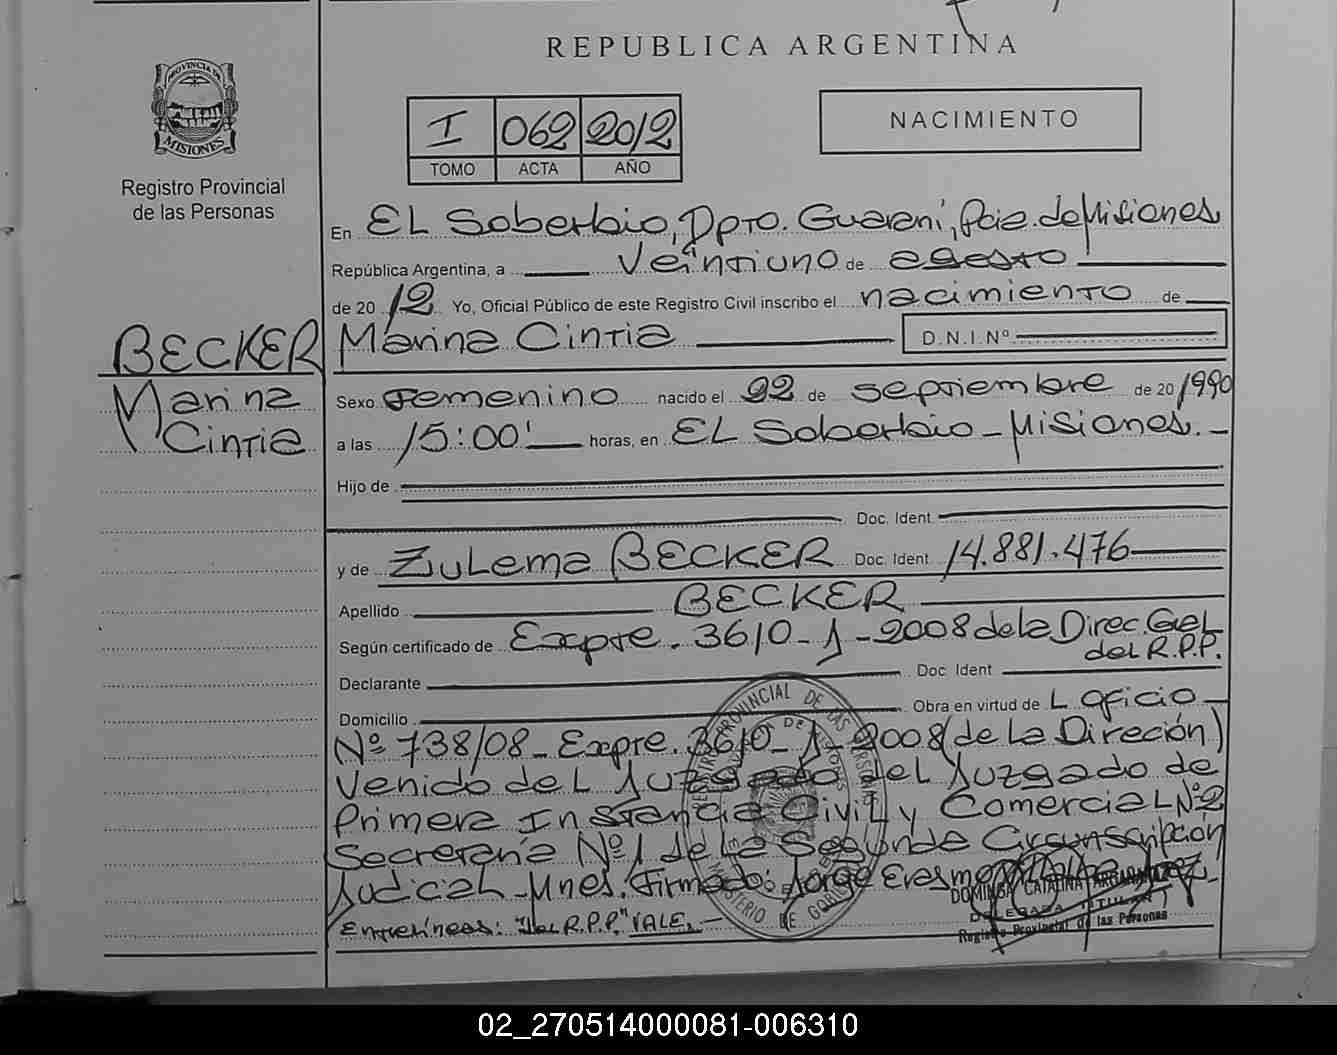 REPUBLICA ARGENTINA
PROVINCIA DE
MISIONES
Registro Provincial
de las Personas
I 062 2012
TOMO ACTA AÑO
NACIMIENTO
En EL Soberbio, Dpto. Guaraní, Pcia. de Misiones
República Argentina, a Veintiuno de agosto
de 20 12 Yo, Oficial Público de este Registro Civil inscribo el nacimiento de
BECKER Marina Cintia D.N.I.Nº
Marina
Cintia
Sexo Femenino nacido el 22 de Septiembre de 20 1990
a las 15:00' horas, en EL Soberbio - Misiones. -
Hijo de
Doc. Ident.
y de Zulema BECKER Doc. Ident. 14.881.476
Apellido BECKER
Según certificado de Expte. 3610-J-2008 de la Direc. Gel
del R.P.P.
Declarante Doc. Ident
Domicilio Obra en virtud de L oficio
Nº 738/08 - Expte. 3610-J-2008 (de La Direción)
Venido del Juzgado del Juzgado de
Primera Instancia Civil y Comercial Nº2
Secretaría Nº1 de la Segunda Circunscripción
Judicial - Mnes. Firmado: Jorge Erasmo
Entrelíneas: "del R.P.P." VALE. -
DOMINGA CATALINA
DELEGADA TITULAR
Registro Provincial de las Personas
02_270514000081-006310